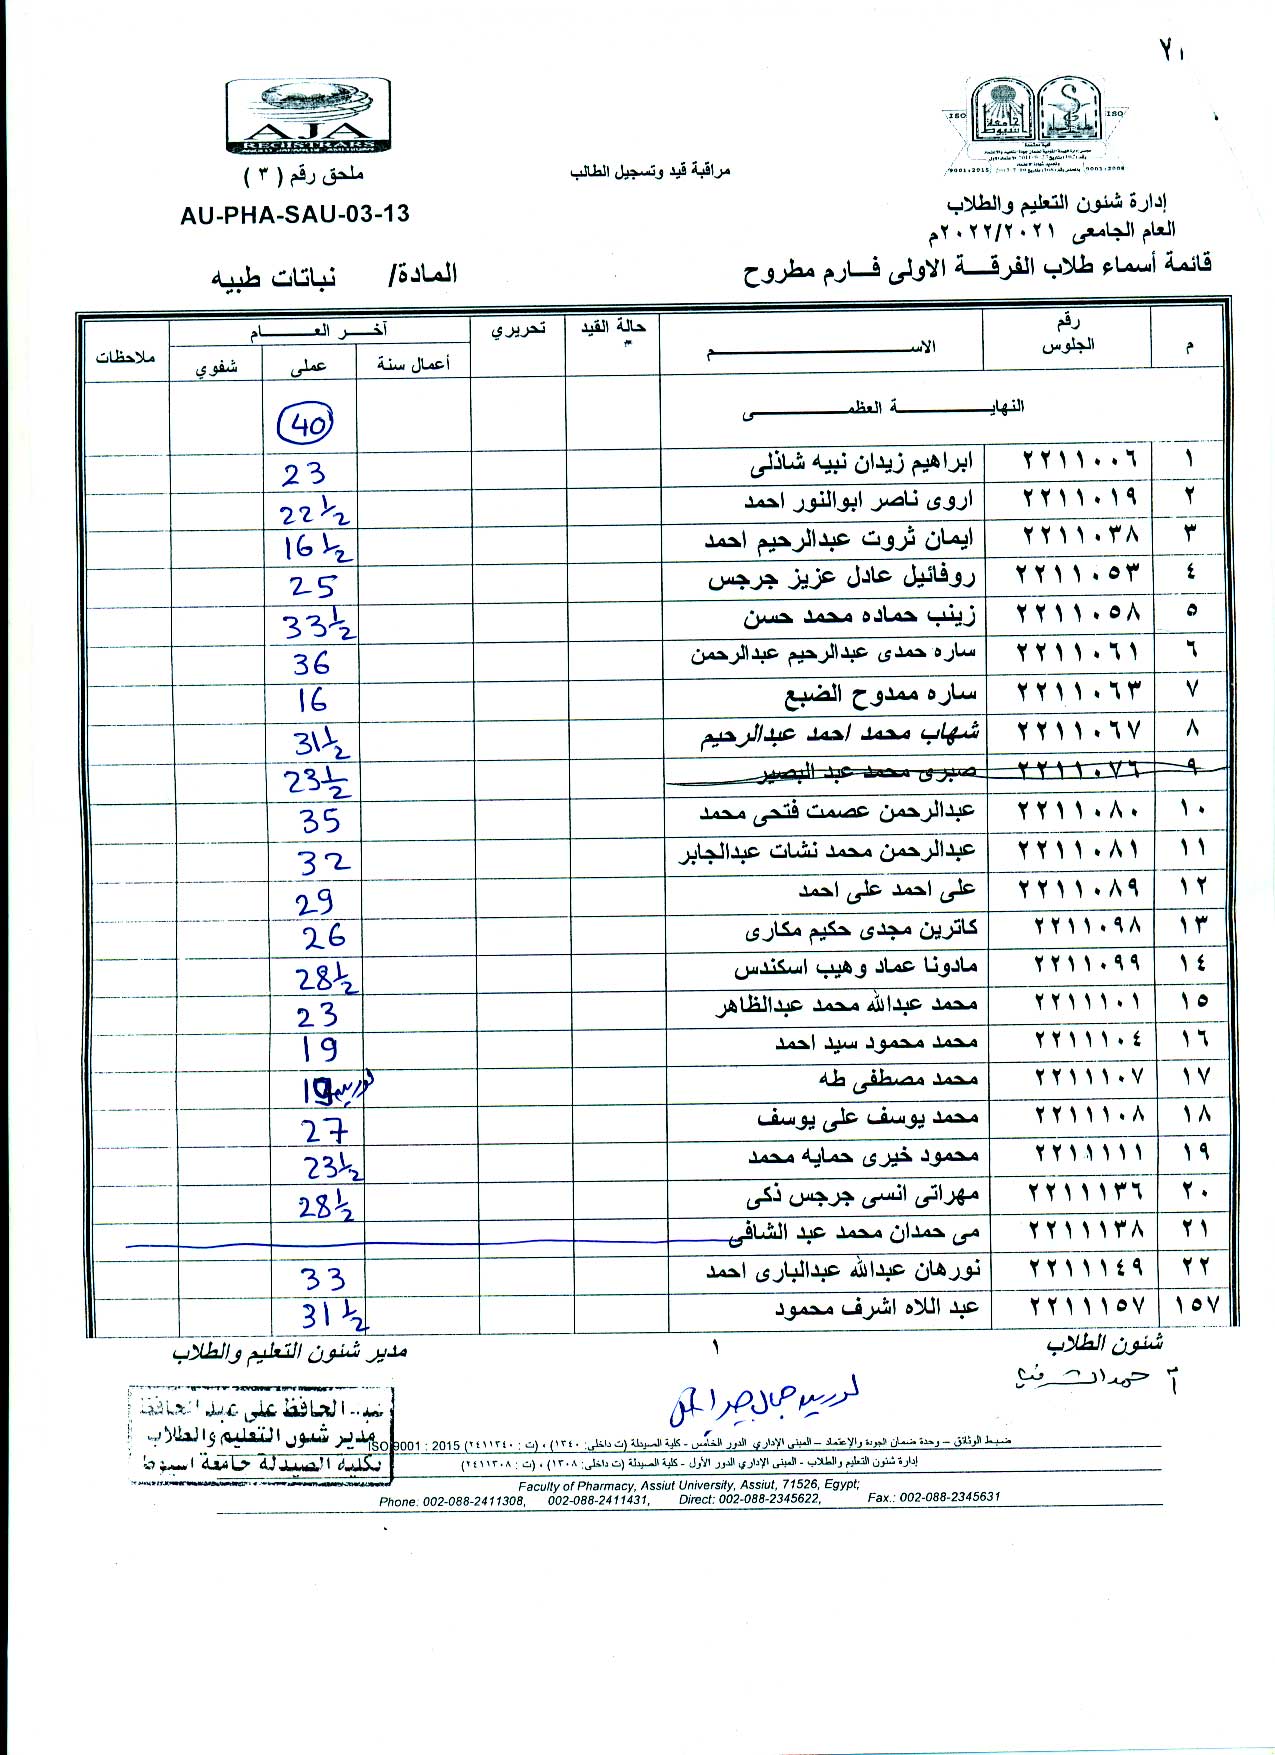 ٢١
AJA
REGISTRARS
ISO
ISO
جامعة
اسيوط
ملحق رقم ( ٣ )
مراقبة قيد وتسجيل الطالب
AU-PHA-SAU-03-13
إدارة شئون التعليم والطلاب
العام الجامعى ٢٠٢٢/٢٠٢١م
قائمة أسماء طلاب الفرقة الاولى فارم مطروح
المادة/ نباتات طبيه
م رقم الجلوس الاسم حالة القيد تحريري آخر العام ملاحظات
أعمال سنة عملى شفوي
النهاية العظمى 40
١ ٢٢١١٠٠٦ ابراهيم زيدان نبيه شاذلى 23
٢ ٢٢١١٠١٩ اروى ناصر ابوالنور احمد 22 ½
٣ ٢٢١١٠٣٨ ايمان ثروت عبدالرحيم احمد 16 ½
٤ ٢٢١١٠٥٣ روفائيل عادل عزيز جرجس 25
٥ ٢٢١١٠٥٨ زينب حماده محمد حسن 33 ½
٦ ٢٢١١٠٦١ ساره حمدى عبدالرحيم عبدالرحمن 36
٧ ٢٢١١٠٦٣ ساره ممدوح الضبع 16
٨ ٢٢١١٠٦٧ شهاب محمد احمد عبدالرحيم 31 ½
٩ ٢٢١١٠٧٦ صبرى محمد عبد البصير 23 ½
١٠ ٢٢١١٠٨٠ عبدالرحمن عصمت فتحى محمد 35
١١ ٢٢١١٠٨١ عبدالرحمن محمد نشات عبدالجابر 32
١٢ ٢٢١١٠٨٩ على احمد على احمد 29
١٣ ٢٢١١٠٩٨ كاترين مجدى حكيم مكارى 26
١٤ ٢٢١١٠٩٩ مادونا عماد وهيب اسكندس 28 ½
١٥ ٢٢١١١٠١ محمد عبدالله محمد عبدالظاهر 23
١٦ ٢٢١١١٠٤ محمد محمود سيد احمد 19
١٧ ٢٢١١١٠٧ محمد مصطفى طه
١٨ ٢٢١١١٠٨ محمد يوسف على يوسف 27
١٩ ٢٢١١١١١ محمود خيرى حمايه محمد 23 ½
٢٠ ٢٢١١١٣٦ مهراتى انسى جرجس ذكى 28 ½
٢١ ٢٢١١١٣٨ مى حمدان محمد عبد الشافى
٢٢ ٢٢١١١٤٩ نورهان عبدالله عبدالبارى احمد 33
١٥٧ ٢٢١١١٥٧ عبد اللاه اشرف محمود 31 ½
شئون الطلاب
١
مدير شئون التعليم والطلاب
الحافظ على عبد الحافظ
مدير شئون التعليم والطلاب
بكلية الصيدلة جامعة اسيوط
ضبط الوثائق – وحدة ضمان الجودة والاعتماد – المبنى الإداري الدور الخامس - كلية الصيدلة (ت داخلى: ١٣٤٠) ، (ت : ٢٤١١٣٤٠) ISO 9001 : 2015
إدارة شئون التعليم والطلاب - المبنى الإداري الدور الأول - كلية الصيدلة (ت داخلى: ١٣٠٨) ، (ت : ٢٤١١٣٠٨)
Faculty of Pharmacy, Assiut University, Assiut, 71526, Egypt;
Phone: 002-088-2411308, 002-088-2411431, Direct: 002-088-2345622, Fax.: 002-088-2345631